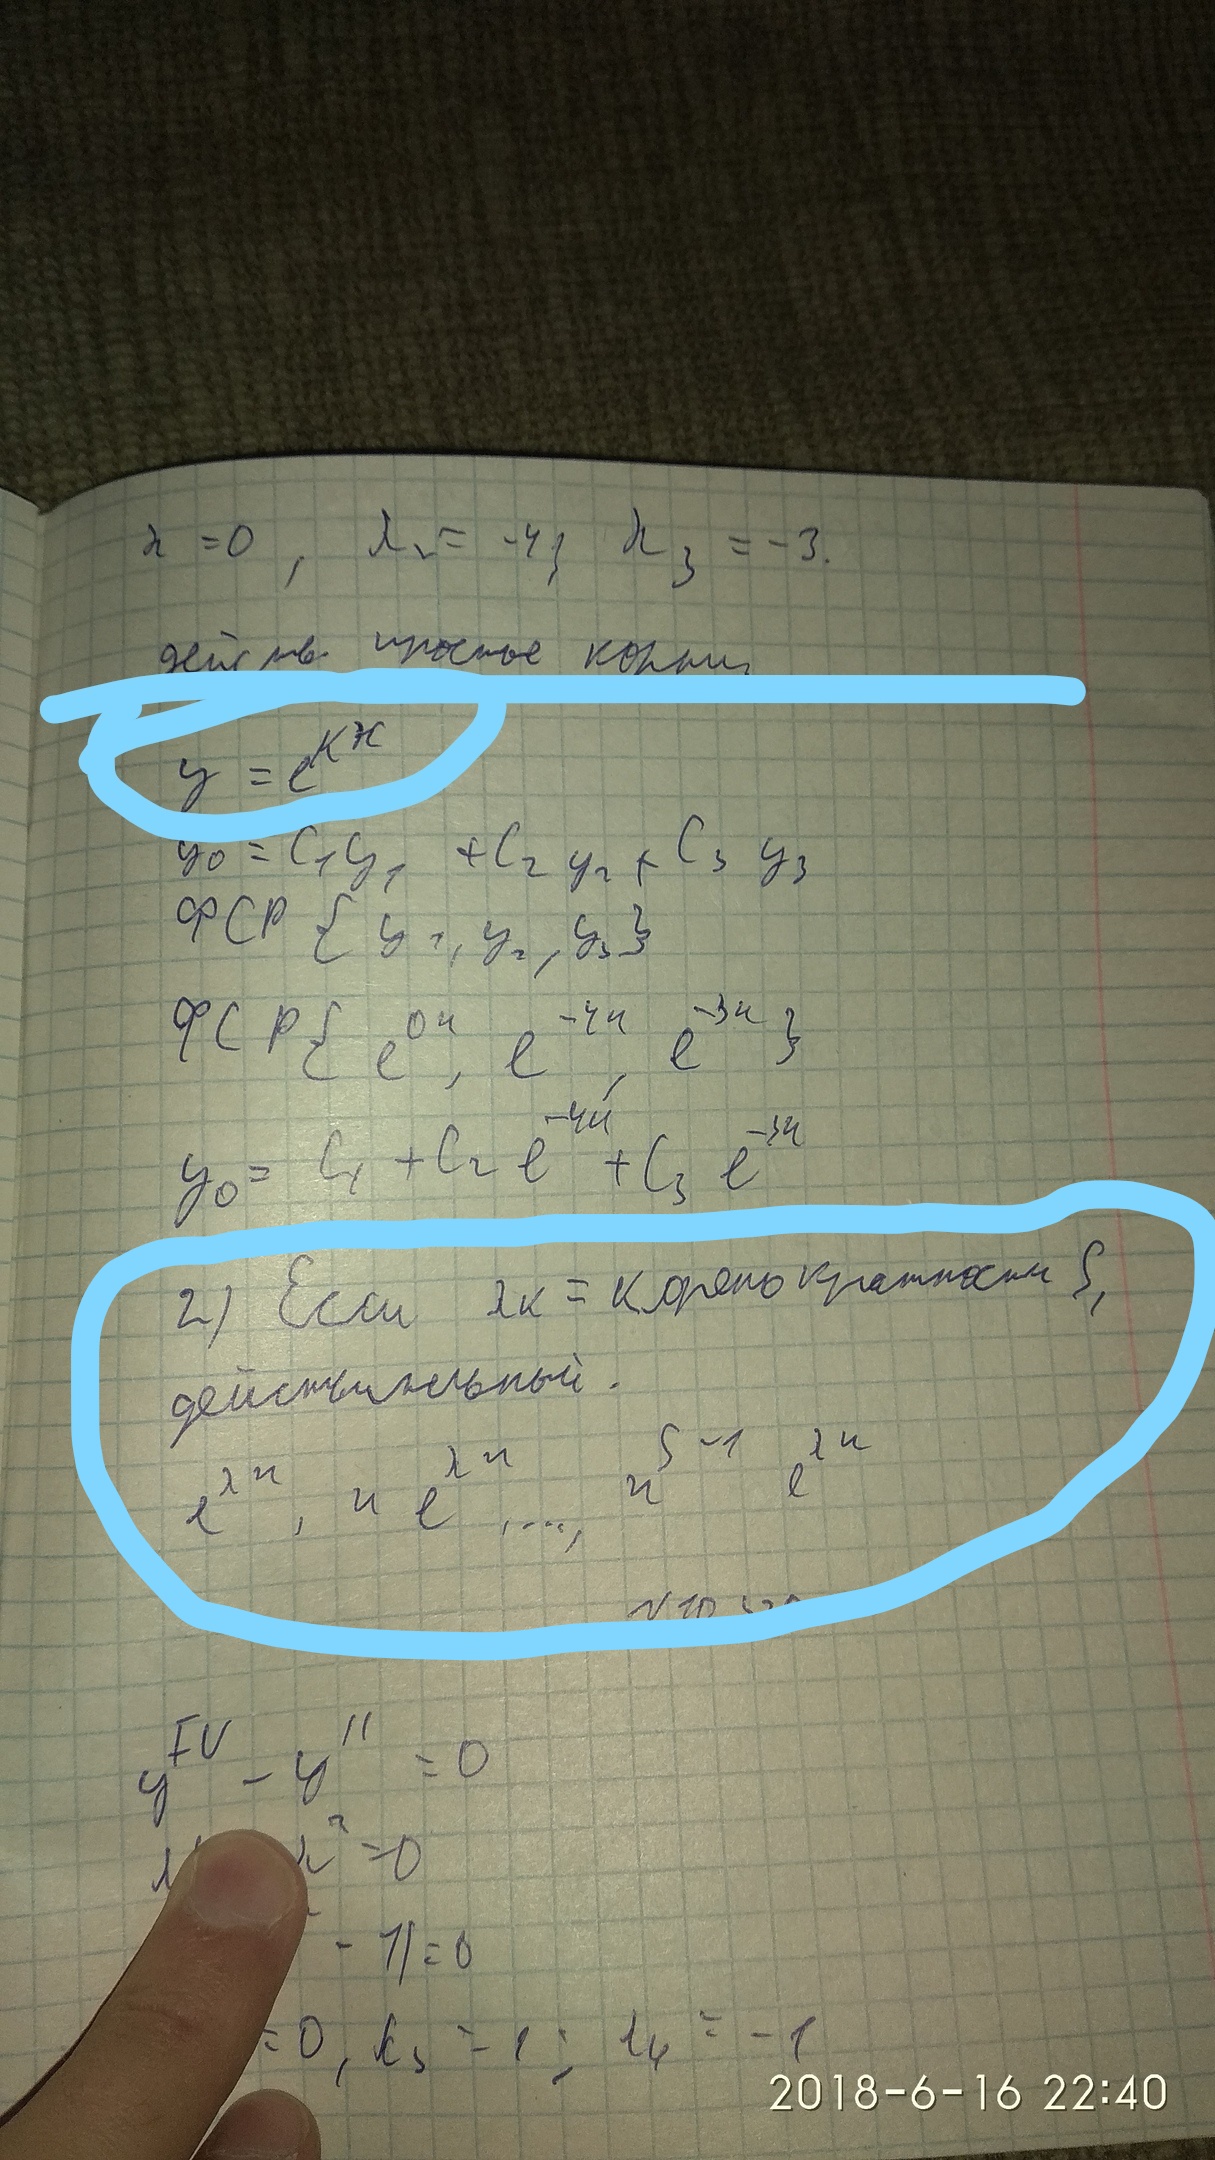 λ = 0, λ₂ = -4; λ₃ = -3.
действ простые корни
y = e^{kx}
y₀ = C₁y₁ + C₂y₂ + C₃y₃
ФСР { y₁, y₂, y₃}
ФСР{ e^{0x}, e^{-4x}, e^{-3x} }
y₀ = C₁ + C₂ e^{-4x} + C₃ e^{-3x}
2) Если λк = корень кратности S,
действительный.
e^{λx}, x e^{λx}, ..., x^{S-1} e^{λx}
y^{IV} - y'' = 0
λ² = 0
- 1) = 0
= 0, λ₃ = 1; λ₄ = -1
2018-6-16 22:40